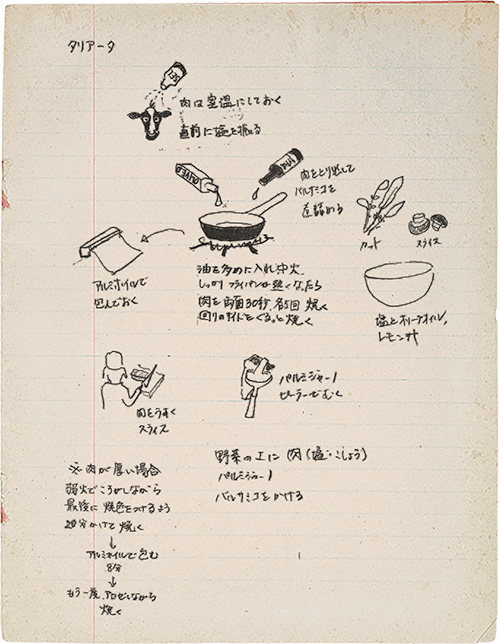 タリアータ
肉は室温にしておく
直前に塩を振る
肉をとり出して
バルサミコを
煮詰める
カット
スライス
アルミホイルで
包んでおく
油を多めに入れ中火、
しっかりフライパンが熱くなったら
肉を両面30秒、各5回焼く
回りのサイドもぐるっと焼く
塩とオリーブオイル、
レモン汁
肉をうすく
スライス
パルミジャーノ
ピーラーでむく
※肉が厚い場合
弱火でころがしながら
最後に焼色をつけるよう
20分かけて焼く
↓
アルミホイルで包む
8分
↓
もう一度、アロゼしながら
焼く
野菜の上に肉(塩・こしょう)
パルミジャーノ
バルサミコをかける